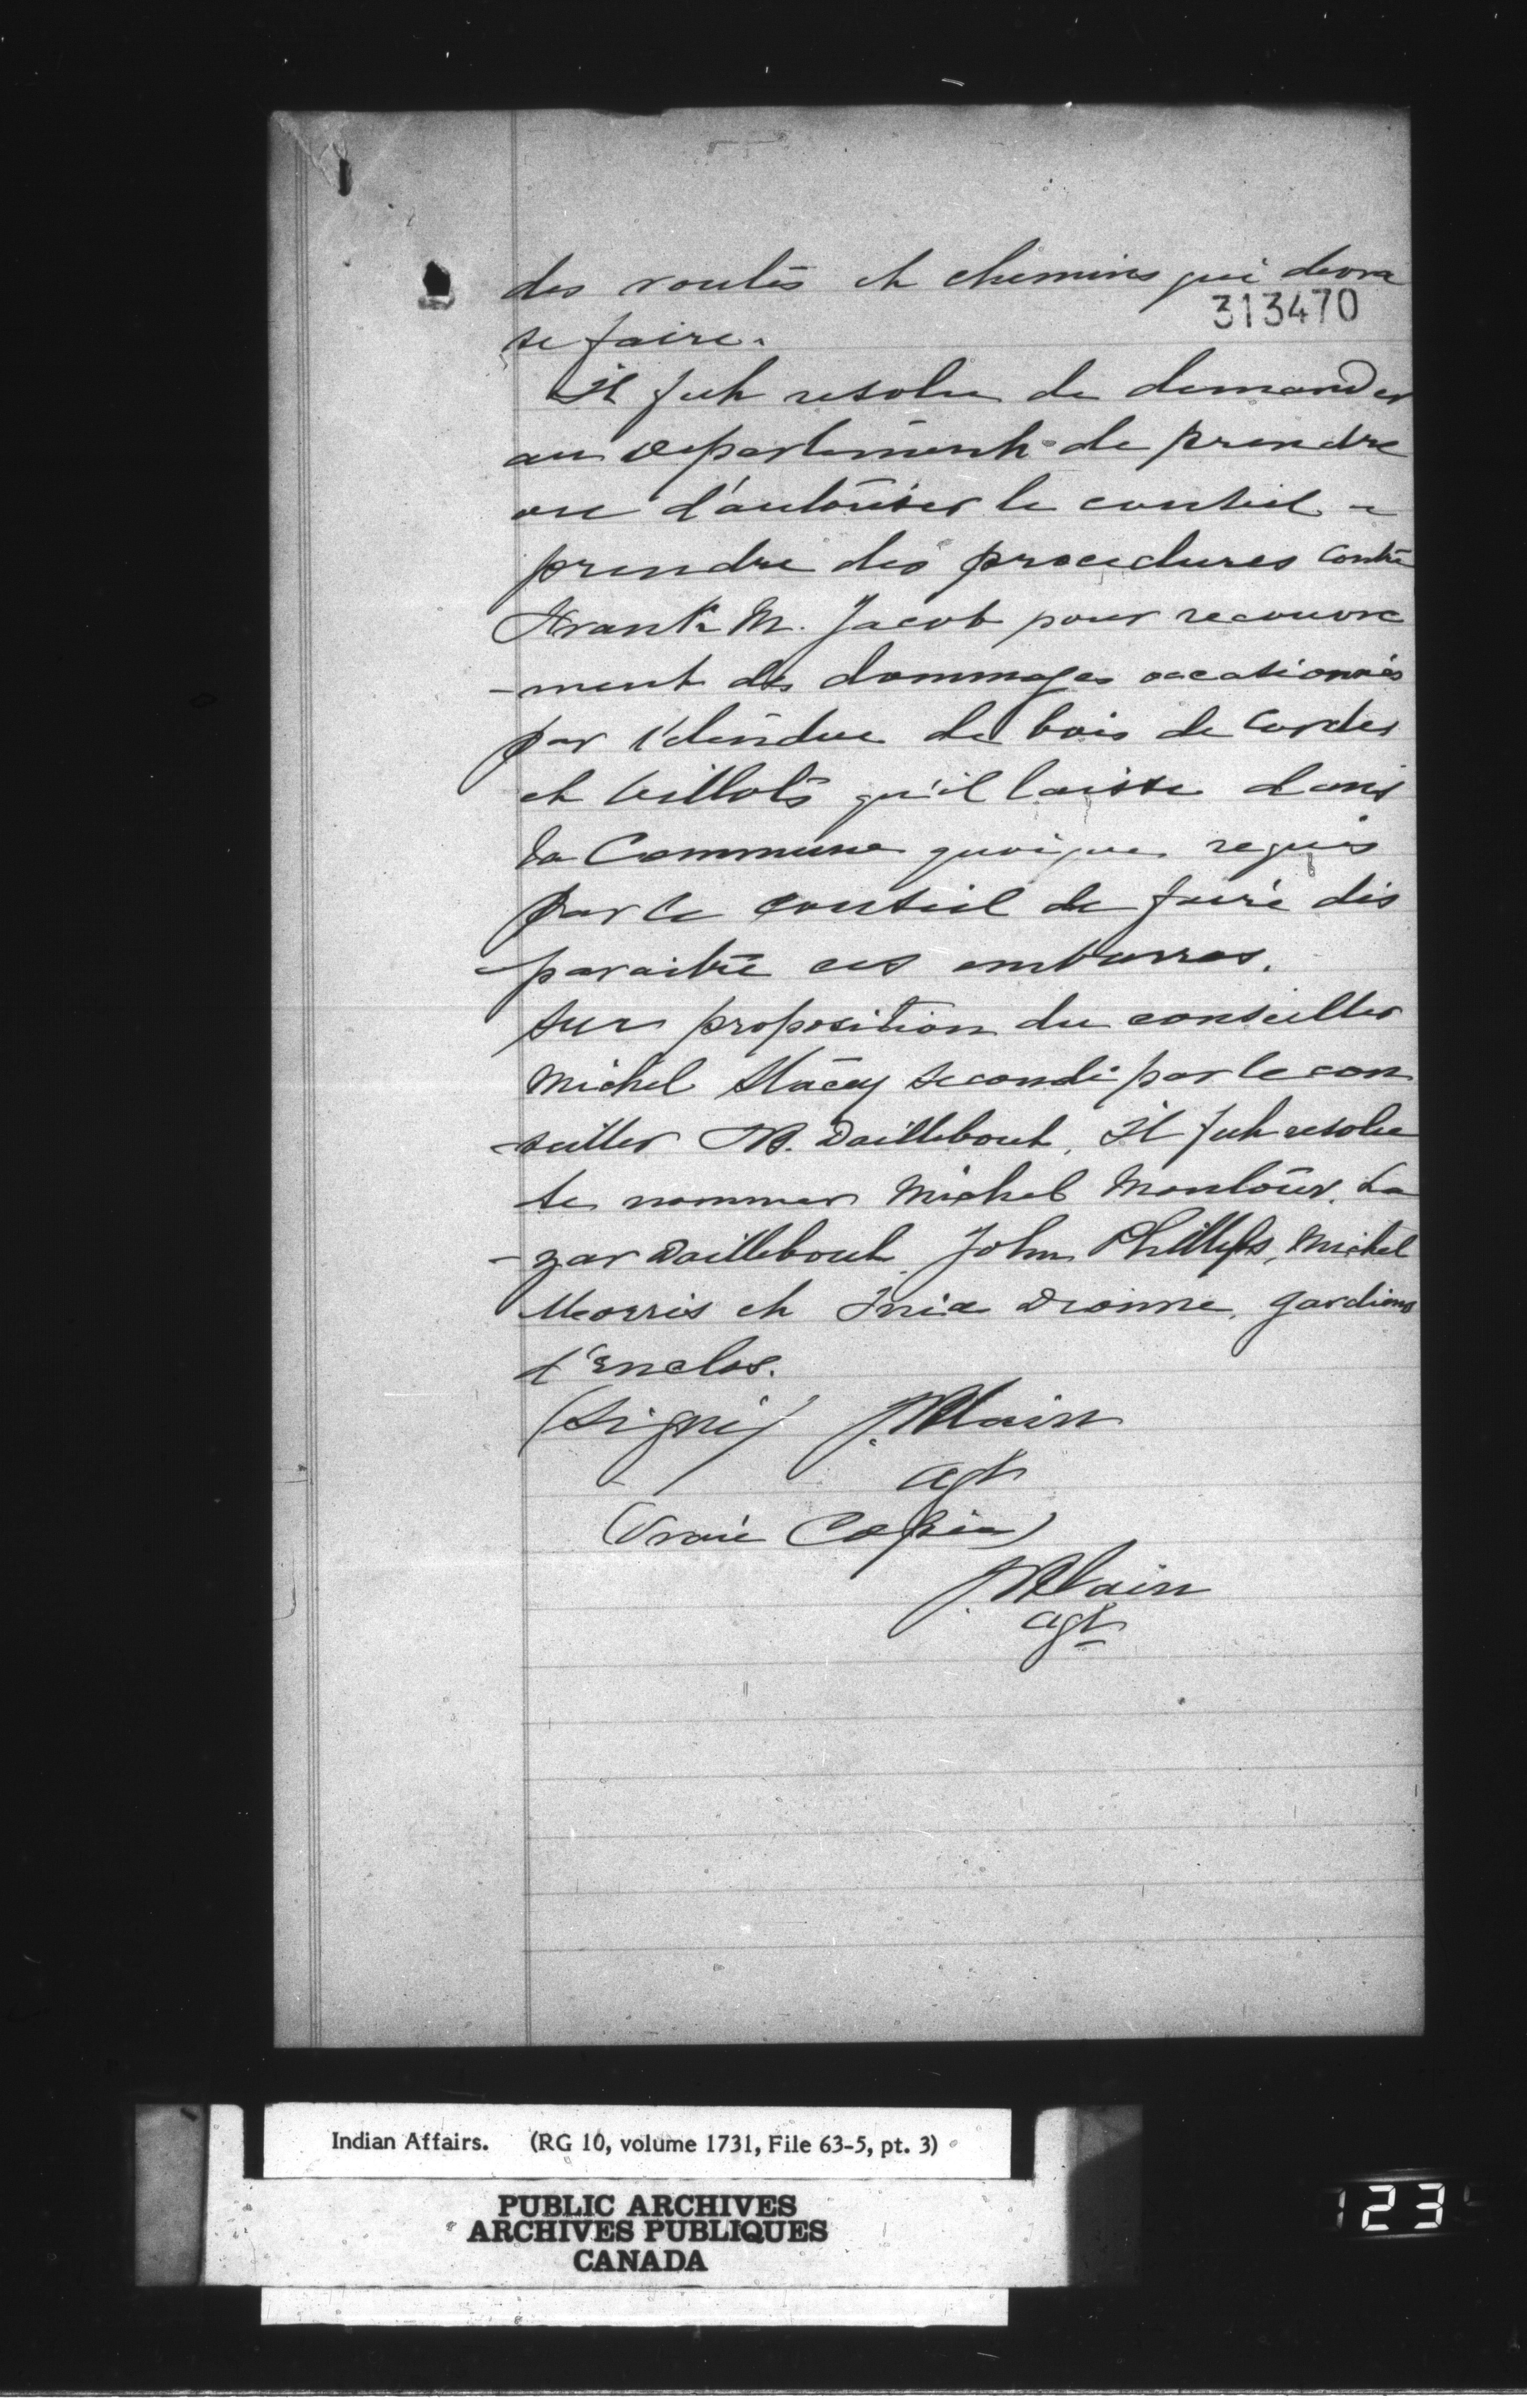 des routes et chemins qui devra
313470
se faire.
Il fut resolu de demander
au Departement de prendre
ou d'autoriser le conseil a
prendre des procedures contre
Frank M. Jacob pour recouvre
-ment des dommages occationnés
par l'etendue de bois de cordes
et billots qu'il laisse dans
la Commune quoique requis
par le conseil de faire dis
-paraitre ces embarras.
Sur proposition du conseiller
Michel Stacey secondé par le con
-seiller M. Daillebout, Il fut resolu
de nommer Michel Montour, La
-zar Daillebout, John Phillips, Michel
Morris et Dionne, gardiens
d'Enclos.
(Signé) J. Blain
agt
(Vraie Copie)
J. Blain
agt
Indian Affairs. (RG 10, volume 1731, File 63-5, pt. 3)
PUBLIC ARCHIVES
ARCHIVES PUBLIQUES
CANADA
123